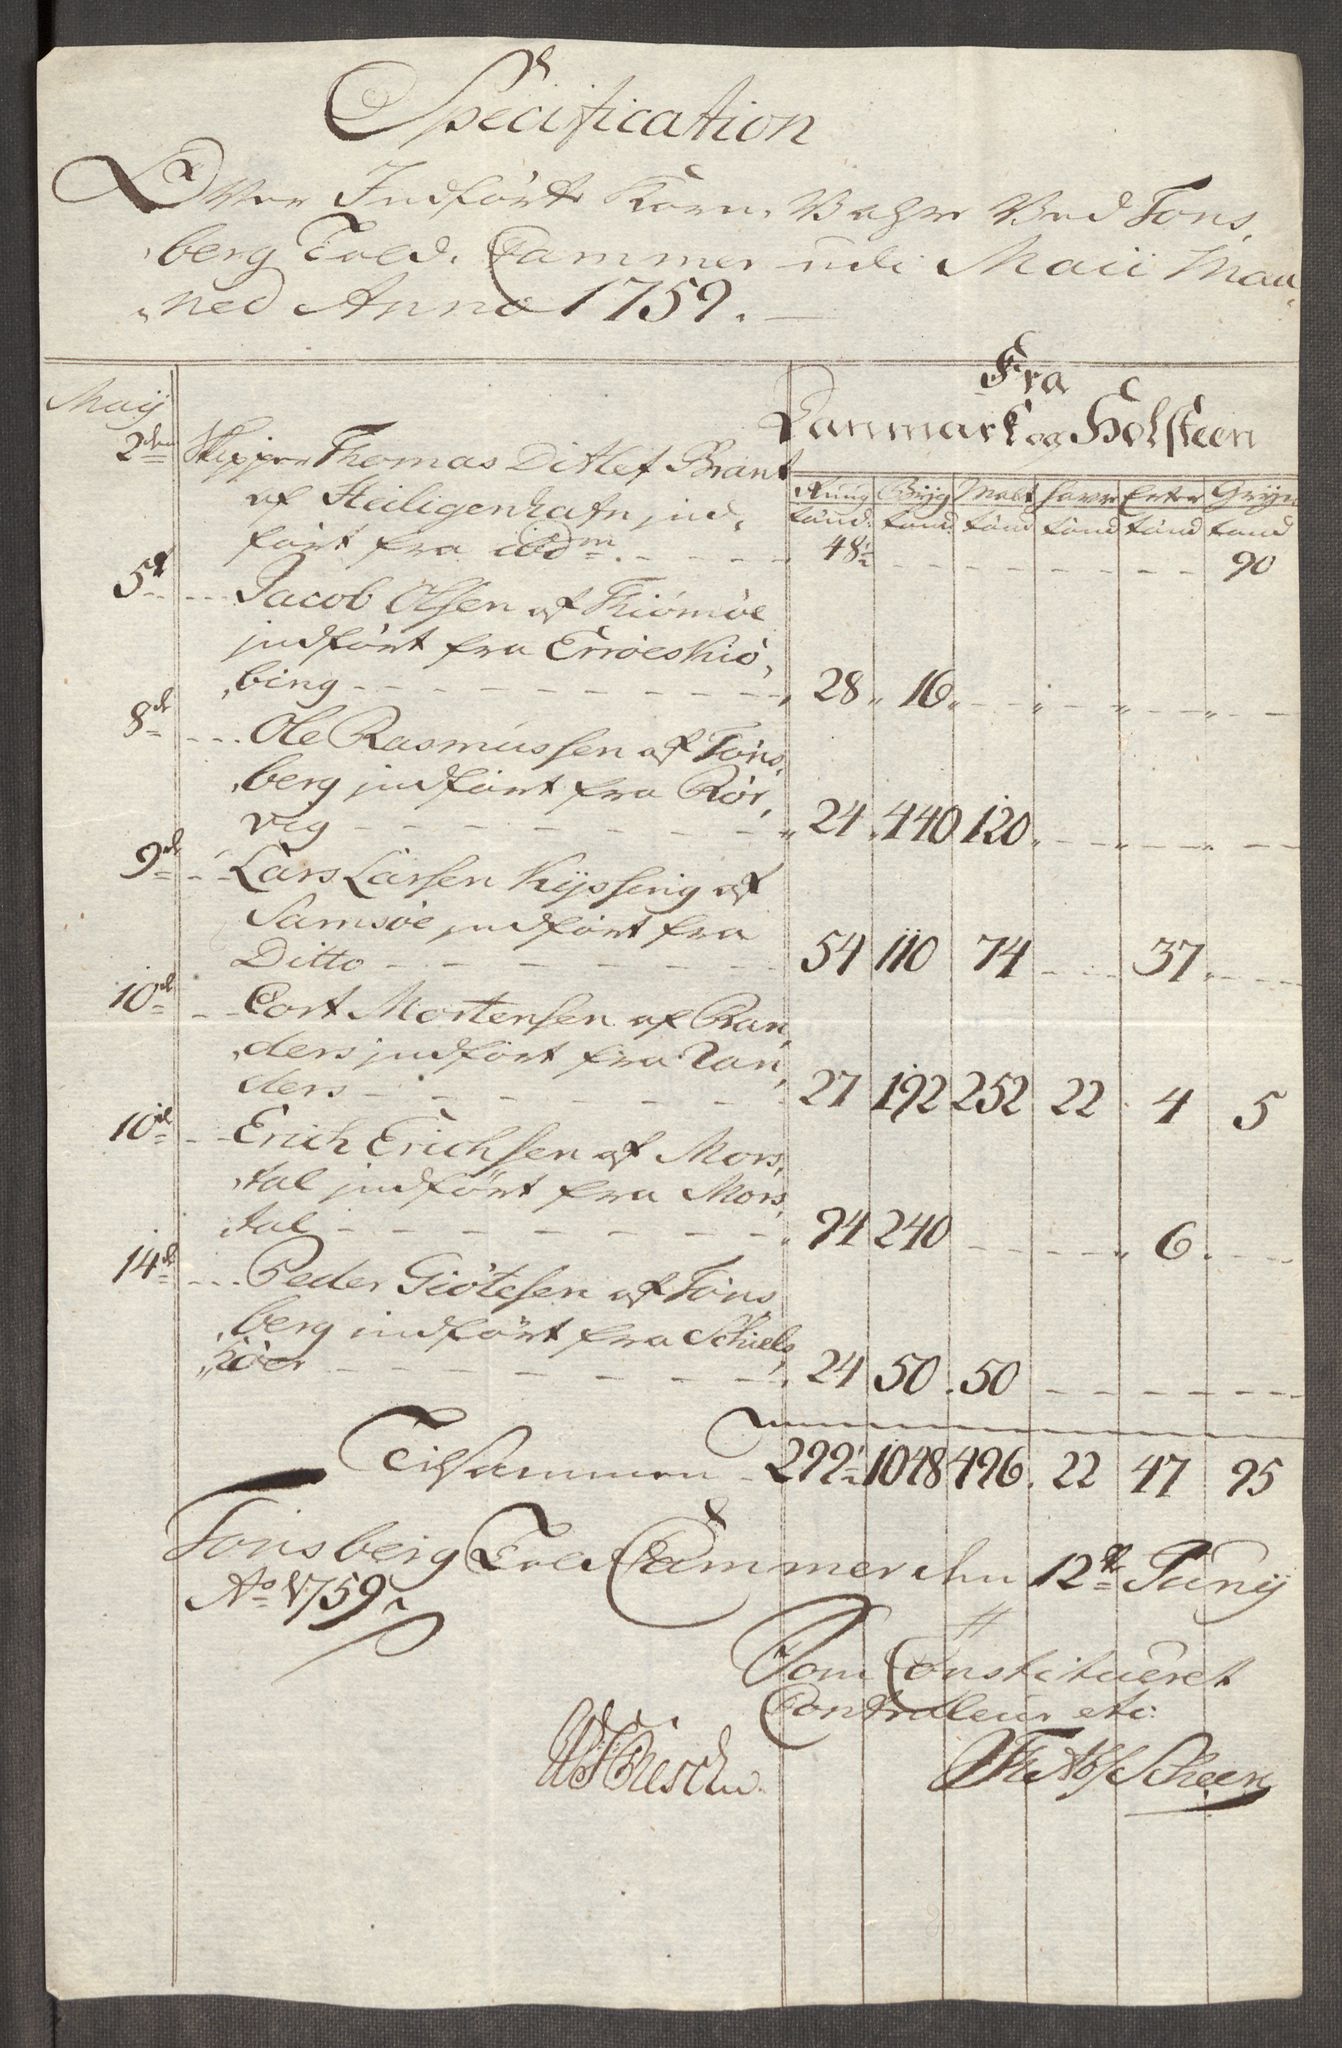 Specification
Over Indførte Korn Vahre Ved Tøns,
,berg Told Cammer udi Maii Maa,
,ned Anno 1759.
Fra
Danmark og Holsteen
Maij
Rug Bÿg Malt Havre Erter Grÿn
tønd. tønd. tønd tønd tønd tønd
2den Skipper Thomas Ditlef Brant
af Heiligenhafn ind,
ført fra ibdm - - - - 48½ - - - - - 90
5t - - Jacob Olsen af Thiømøe
indført fra Erröeskiö,
,bing - - - - 28 " 16 " - " - " - " -
8de - - Ole Rasmussen af Tøns,
,berg indført fra Rör,
vig - - - - " 24 " 440 120 " - " - " -
9de - - Lars Larsen Kyssing af
Samsøe indført fra
Ditto - - - - 54 110 74 - - 37 " - -
10de - - Cort Mortensen af Ran,
,ders indført fra Ran,
ders - - - - 27 192 252 22 4 5
10de - - Erich Erichsen af Mors,
,tal indført fra Mors,
,tal - - - - " 94 240 - - - " 6 . - -
14de - - Peder Giötesen af Töns,
,berg indført fra Schiels,
,kiöer - - - - 24 50 . 50 - - - -
Tilsammen - 299½ 1048 496 . 22 47 95
Tönsberg Told Cammer den 12te Junÿ
Ao 1759
Som Constitueret
Controlleur etc: